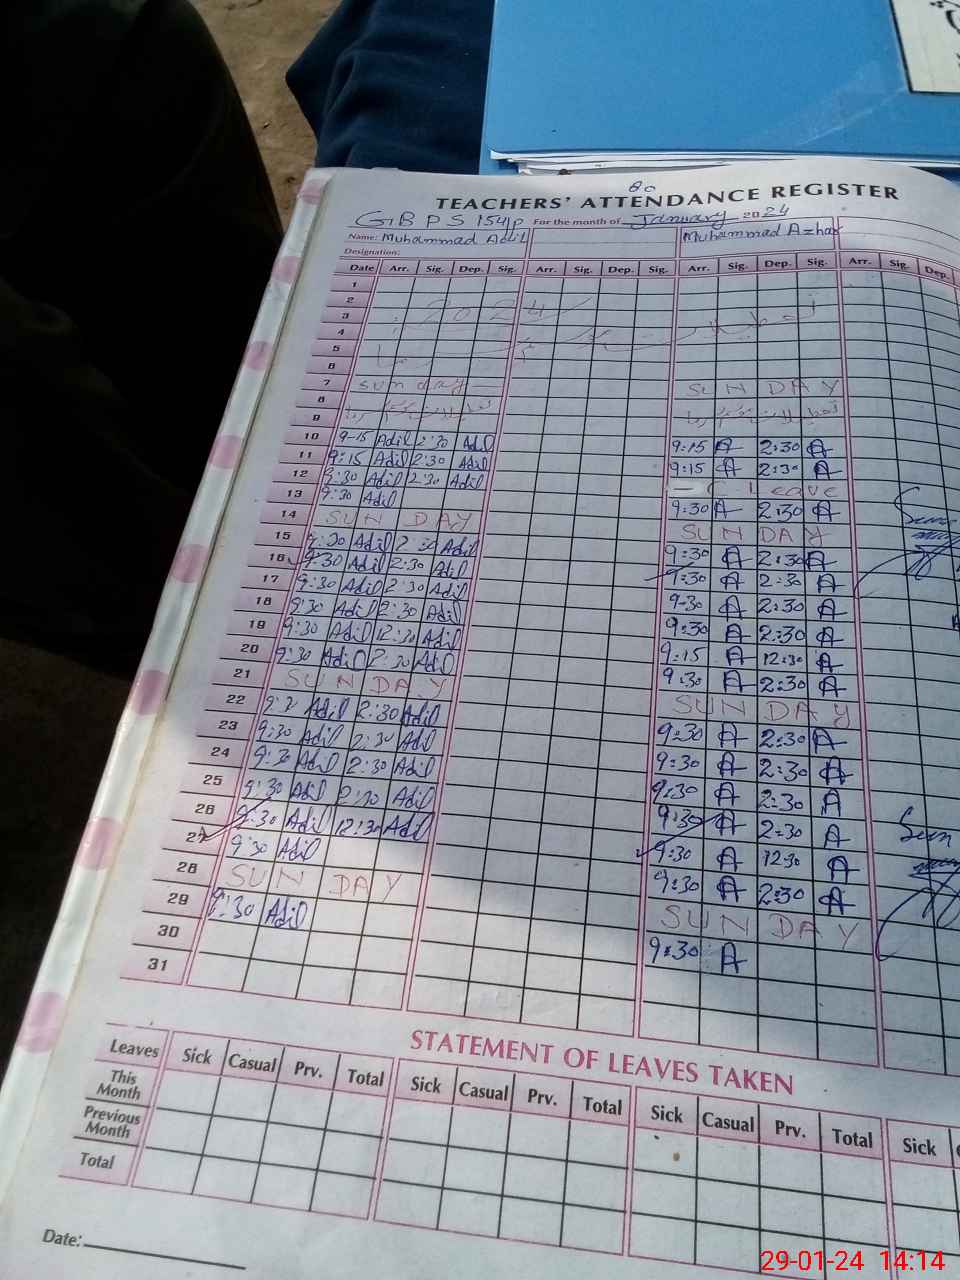 TEACHERS' ATTENDANCE REGISTER
GBPS 154/P For the month of January 2024
Name: Muhammad Adil Muhammad Azhar
Designation:
Date Arr. Sig. Dep. Sig. Arr. Sig. Dep. Sig. Arr. Sig. Dep. Sig. Arr. Sig. Dep.
1
2
3 2024
4
5
6
7 Sunday SUNDAY
8
9
10 9-15 Adil 2:30 Adil 9:15 A 2:30 A
11 9:15 Adil 2:30 Adil 9:15 A 2:30 A
12 9:30 Adil 2:30 Adil C Leave
13 9:30 Adil 9:30 A 2:30 A
14 SUN DAY SUN DAY
15 9:30 Adil 2:30 Adil 9:30 A 2:30 A
16 9:30 Adil 2:30 Adil 9:30 A 2:30 A
17 9:30 Adil 2:30 Adil 9-30 A 2:30 A
18 9:30 Adil 2:30 Adil 9:30 A 2:30 A
19 9:30 Adil 12:30 Adil 9:15 A 12:30 A
20 9:30 Adil 2:30 Adil 9:30 A 2:30 A
21 SUN DAY SUN DAY
22 Adil 2:30 Adil 9:30 A 2:30 A
23 9:30 Adil 2:30 Adil 9:30 A 2:30 A
24 9:30 Adil 2:30 Adil 9:30 A 2:30 A
25 9:30 Adil 2:30 Adil 9:30 A 2:30 A
26 9:30 Adil 12:30 Adil 9:30 A 12:30 A
27 9:30 Adil 9:30 A 2:30 A
28 SUN DAY SUN DAY
29 9:30 Adil 9:30 A
30
31
STATEMENT OF LEAVES TAKEN
Leaves Sick Casual Prv. Total Sick Casual Prv. Total Sick Casual Prv. Total Sick
This Month
Previous Month
Total
Date:
29-01-24 14:14